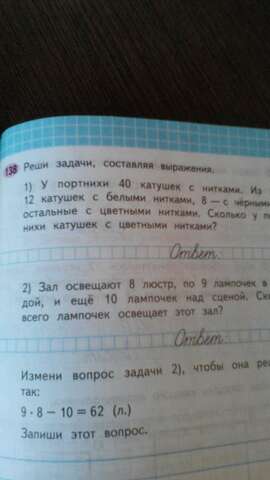 138 Реши задачи, составляя выражения.
1) У портнихи 40 катушек с нитками. Из
12 катушек с белыми нитками, 8 — с чёрным
остальные с цветными нитками. Сколько у по
нихи катушек с цветными нитками?
Ответ:
2) Зал освещают 8 люстр, по 9 лампочек в
дой, и ещё 10 лампочек над сценой. Ск
всего лампочек освещает этот зал?
Ответ:
Измени вопрос задачи 2), чтобы она ре
так:
9 · 8 − 10 = 62 (л.)
Запиши этот вопрос.